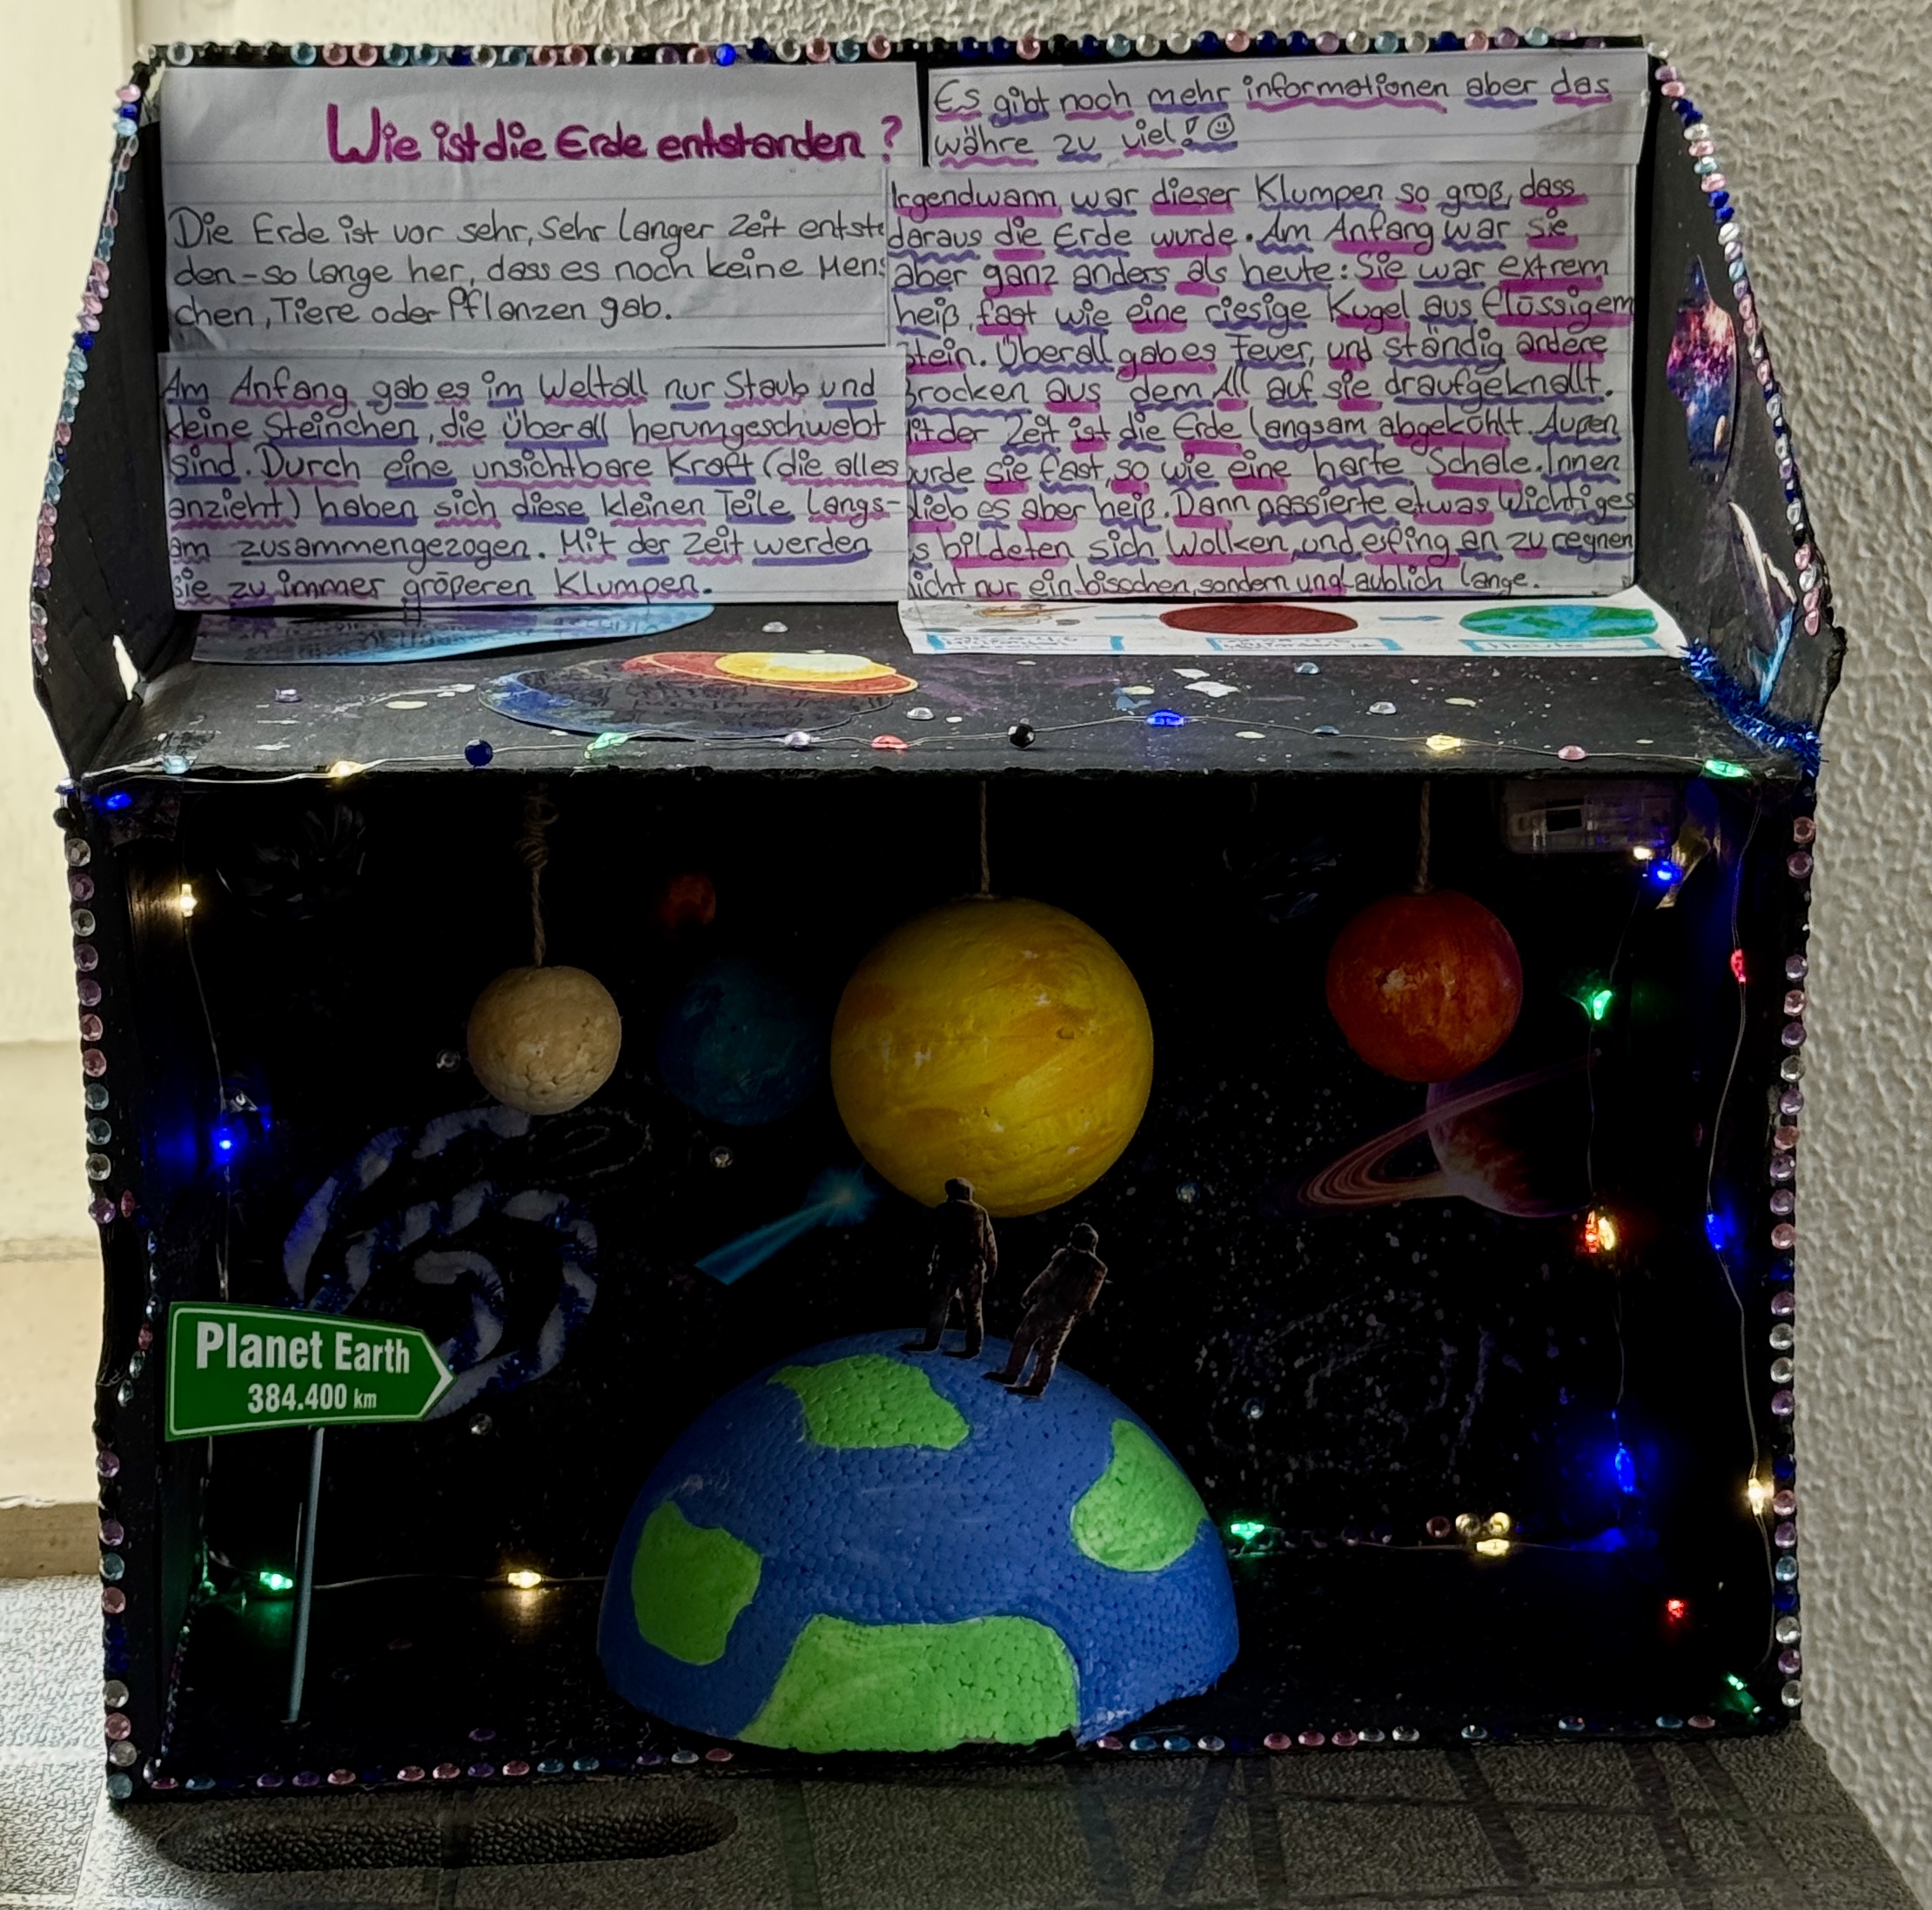 Wie ist die Erde entstanden?
Die Erde ist vor sehr, sehr langer Zeit entste
den-so lange her, dass es noch keine Mens
chen, Tiere oder Pflanzen gab.
Am Anfang gab es im Weltall nur Staub und
kleine Steinchen, die überall herumgeschwebt
sind. Durch eine unsichtbare Kraft (die alles
anzieht) haben sich diese kleinen Teile langs-
am zusammengezogen. Mit der Zeit werden
sie zu immer größeren Klumpen.
Es gibt noch mehr informationen aber das
währe zu viel! ☺
Irgendwann war dieser Klumpen so groß, dass
daraus die Erde wurde. Am Anfang war sie
aber ganz anders als heute: Sie war extrem
heiß, fast wie eine riesige Kugel aus flüssigem
Stein. Überall gab es Feuer, und ständig andere
Brocken aus dem All auf sie draufgeknallt.
Mit der Zeit ist die Erde langsam abgekühlt. Außen
wurde sie fast, so wie eine harte Schale. Innen
blieb es aber heiß. Dann passierte etwas wichtiges
s bildeten sich Wolken, und es fing an zu regnen
nicht nur ein bisschen, sondern unglaublich lange.
Heute
Planet Earth
384.400 km